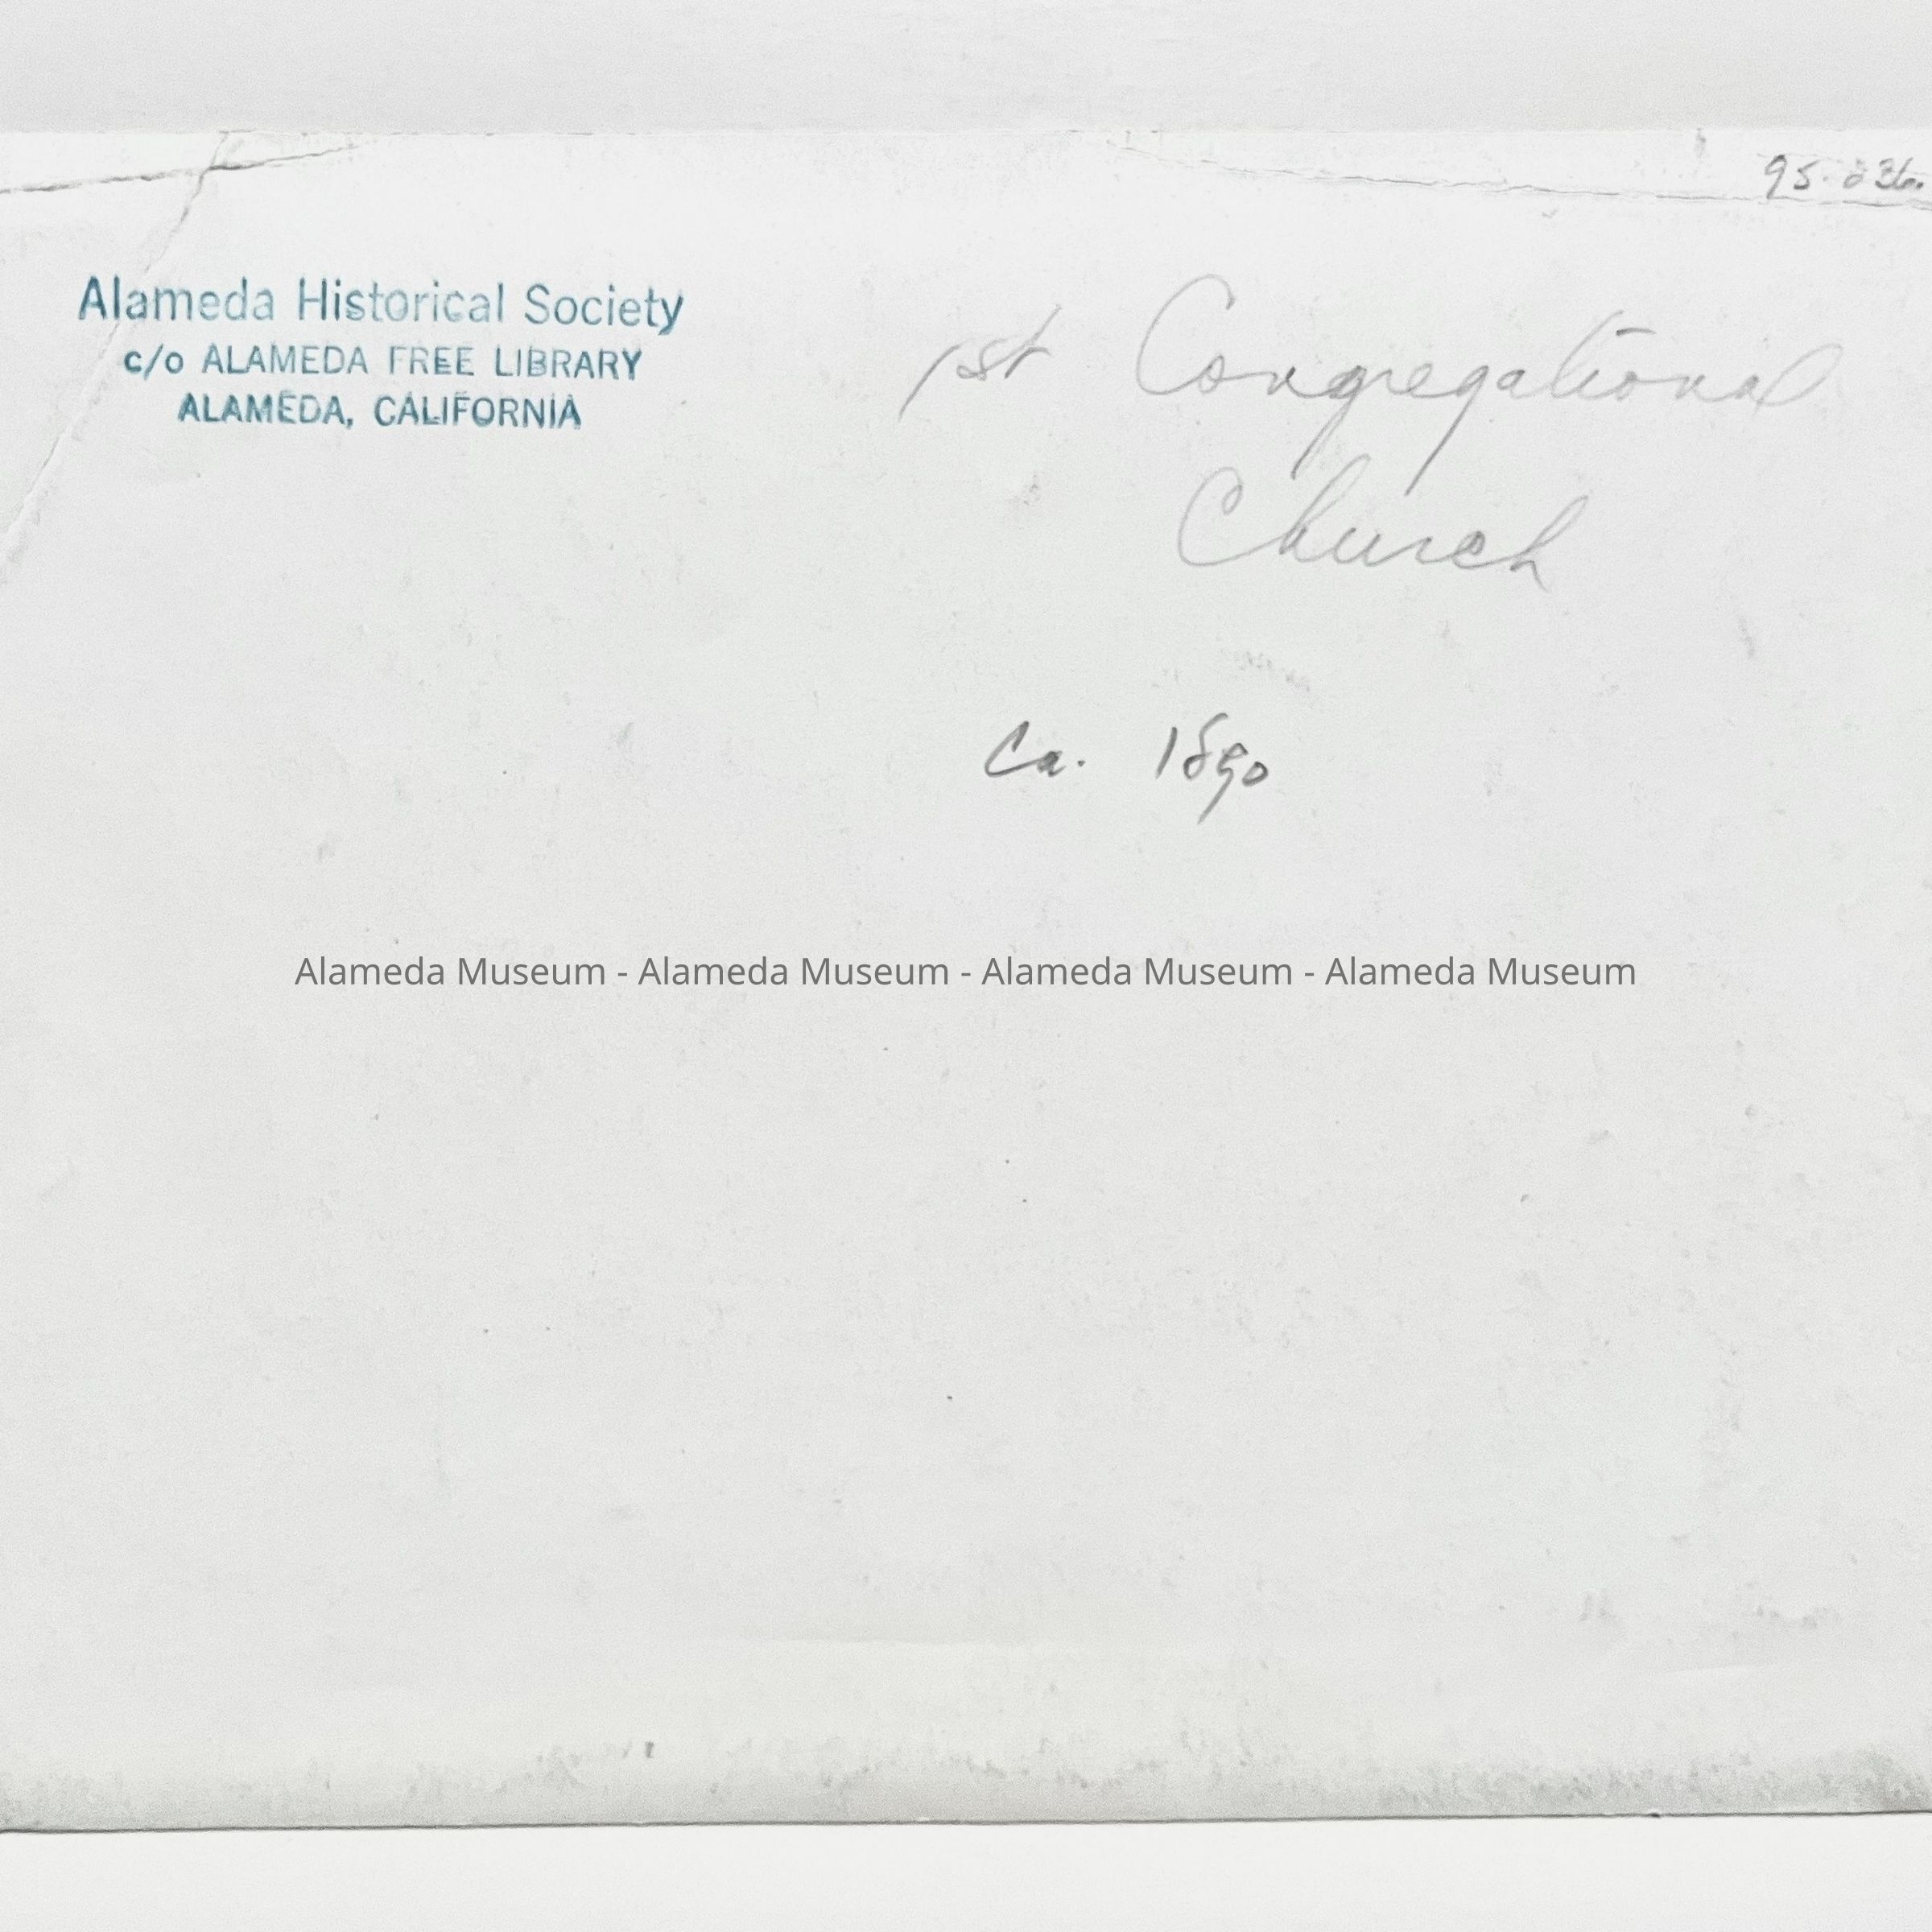 95.236.
Alameda Historical Society
c/o ALAMEDA FREE LIBRARY
ALAMEDA, CALIFORNIA
1st Congregational
Church
Ca. 1890
Alameda Museum - Alameda Museum - Alameda Museum - Alameda Museum